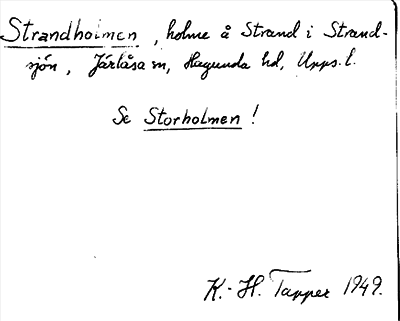 Strandholmen, holme å Strand i Strand-
sjön, Järlåsa sn, Hagunda hd, Upps. l.
Se Storholmen!
K.-H. Tapper 1949.